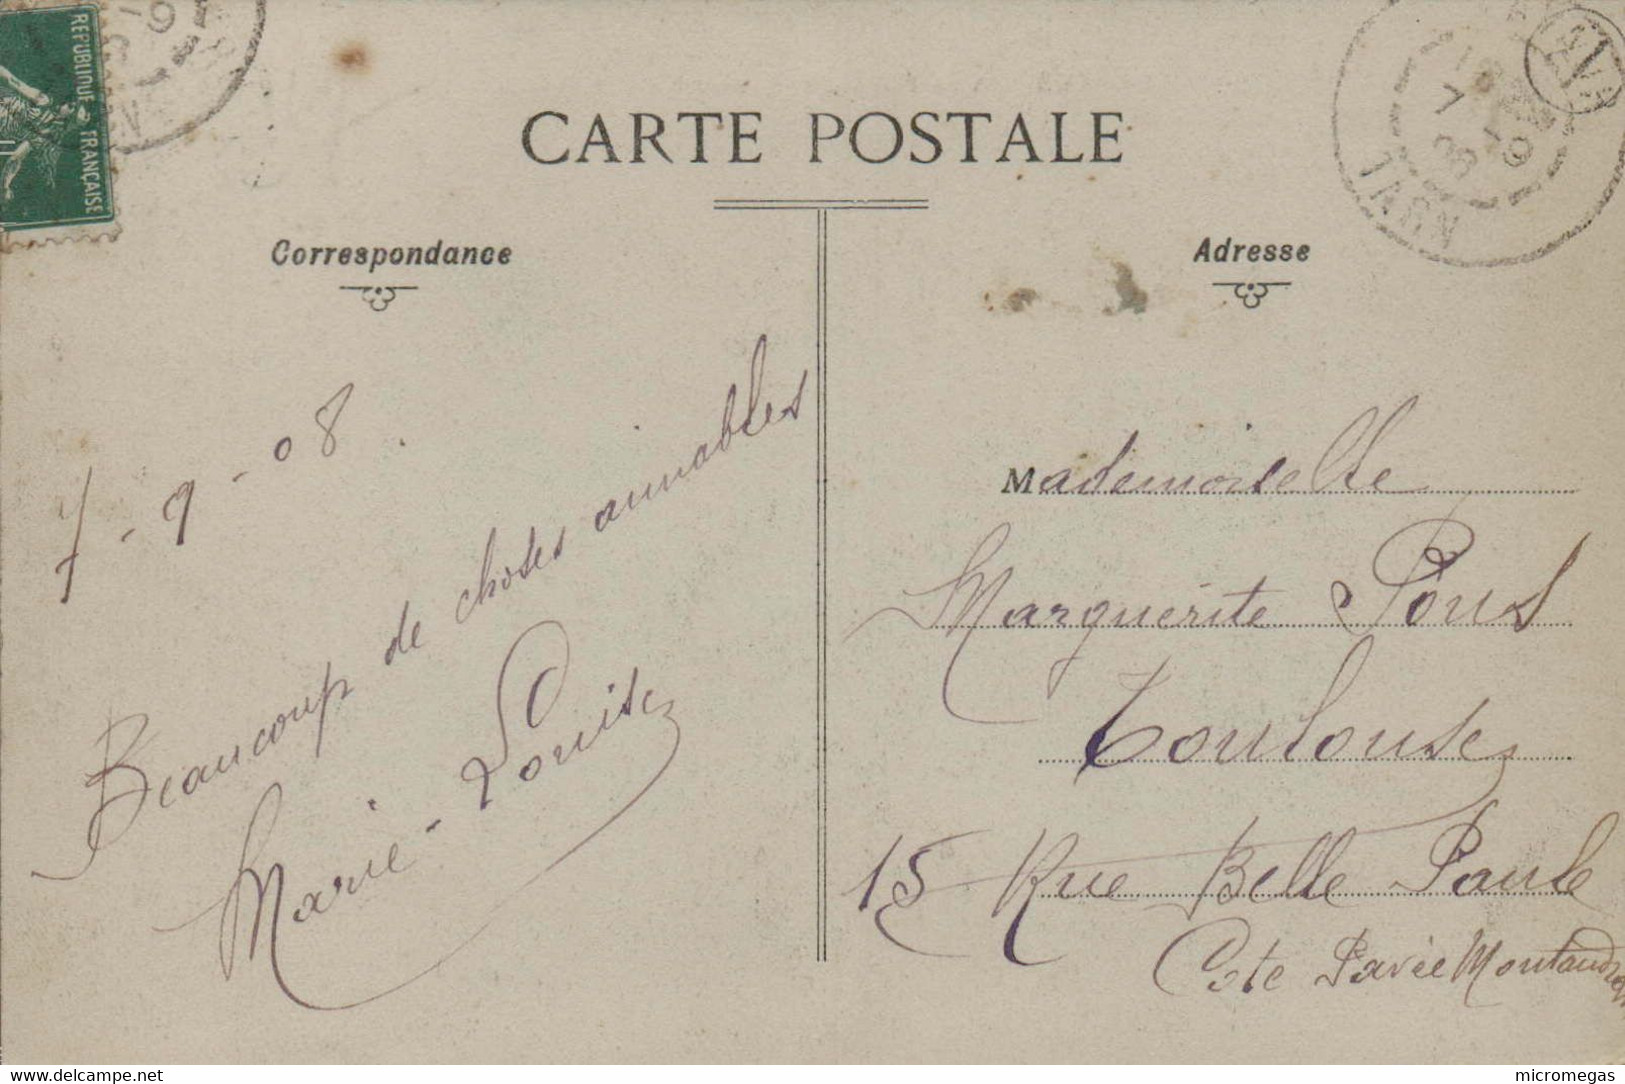 REPUBLIQUE FRANÇAISE
CARTE POSTALE
Correspondance
7-9-08.
Beaucoup de choses aimables
Marie-Louise
Adresse
TARN
7 -9
08
Mademoiselle
Marguerite Pous
Toulouse
15 Rue Belle Paule
Cote Pavée Montaudran
www.delcampe.net
micromegas